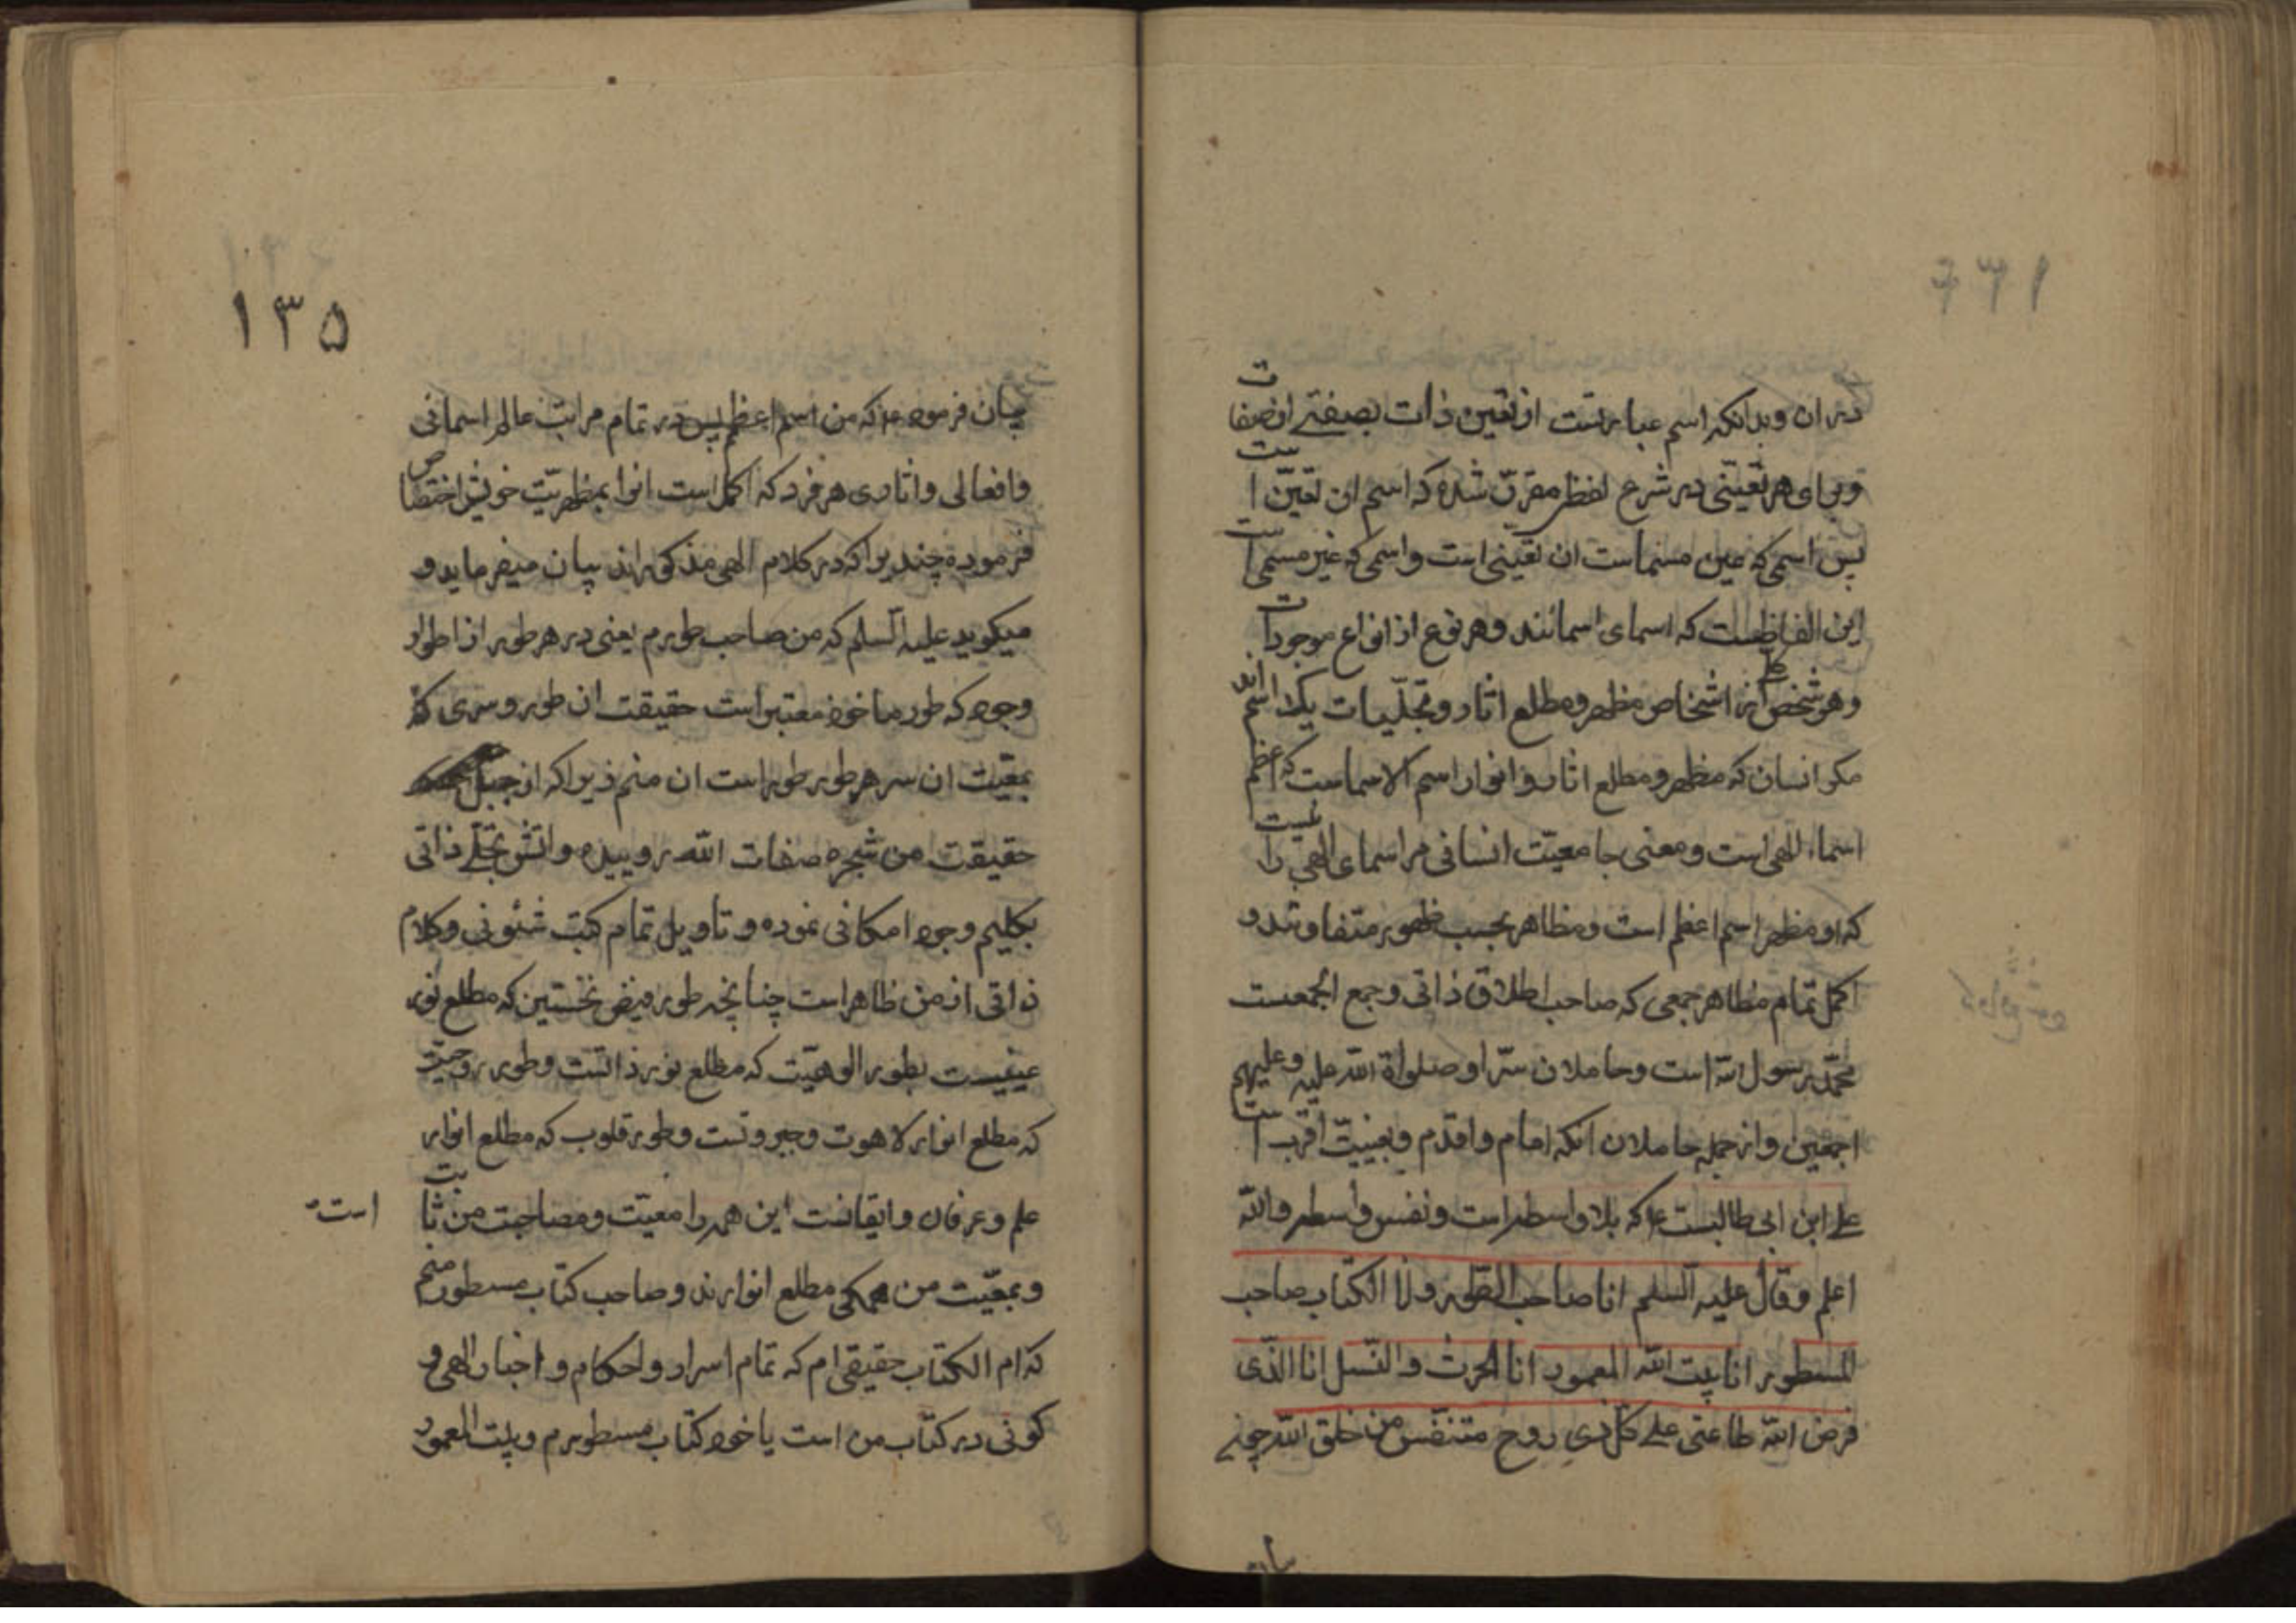 در ان و بدانکه اسم عبارتست از تعین ذات بصفتے از صفات
و برای هر تعیّنی در شرع لفظی مقرّر شده که اسم ان تعیّن است
پس اسمی که عین مسماست ان تعیّنی است و اسمی که غیر مسمی است
این الفاظست که اسمای اسمائند و هر نوع از انواع موجودات
و هر شخص از اشخاص مظهر و مطلع اثار و تجلّیات یک اسم اند
مکر انسان که مظهر و مطلع اثار و انوار اسم الاسماست که اعظم
اسماء الهی است و معنی جامعیّت انسانی مر اسمای الهی را
که او مظهر اسم اعظم است و مظاهر بحسب ظهور متفاوتند و
اکمل تمام مظاهر جمعی که صاحب اطلاق ذاتی و جمع الجمعست
محمّد رسول الله است و حاملان سرّ او صلواة الله علیه و علیهم
اجمعین و از جمله حاملان انکه امام و اقدم و بعینیّت اقرب است
علے ابن ابی طالبست ع که بلا واسطه است و نفس واسطه و الله
اعلم و قال علیه السلم انا صاحب الطور و انا الکتاب صاحب
المسطور انا بیت الله المعمور انا الحرث و النّسل انا الّذی
فرض الله طاعتی علے کل ذی روح متنفّس من خلق الله
بیان
١٣۵
بیان فرمود ع که من اسم اعظم پس در تمام مراتب عالم اسمائی
و افعالی و اثاری هر فرد که اکمل است انرا بمظهریّت خویش اختصاص
فرموده چند را که در کلام الهی مذکورند بیان میفرماید و
میکوید علیه السلم که من صاحب طورم یعنی در هر طور از اطوار
وجود که طور ماخود معتبر است حقیقت ان طور و سری که
بمعیّت ان سر هر طور طور است ان منم زیرا که از جبل
حقیقت من شجره صفات الله روییده و اتش تجلّے ذاتی
بکلیم وجود امکانی نموده و تاویل تمام کتب شئونی و کلام
ذاتی از من ظاهر است چنانچه طور فیض نخستین که مطلع نور
غیبیست بطور الوهیّت که مطلع نور ذاتست و طور روحیّت
که مطلع انوار لاهوت و جبروتست و طور قلوب که مطلع انوار
علم و عرفان و ایقانست این همه را معیّت و مصاحبت من ثابت است
و بمعیّت من همکی مطلع انوارند و صاحب کتاب مسطور منم
که ام الکتاب حقیقی ام که تمام اسرار و احکام و اخبار الهی و
کونی در کتاب من است یا خود کتاب مسطورم و بیت المعمور